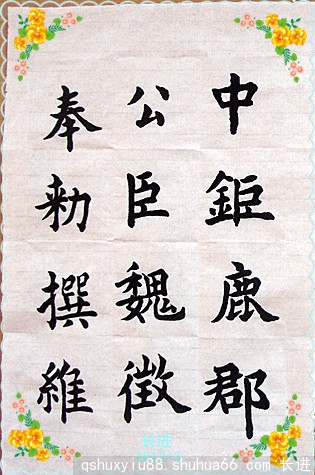 中鉅鹿郡
公臣魏徵
奉勅撰維
长进
qshuxyiu88.shuhua66.com 长进